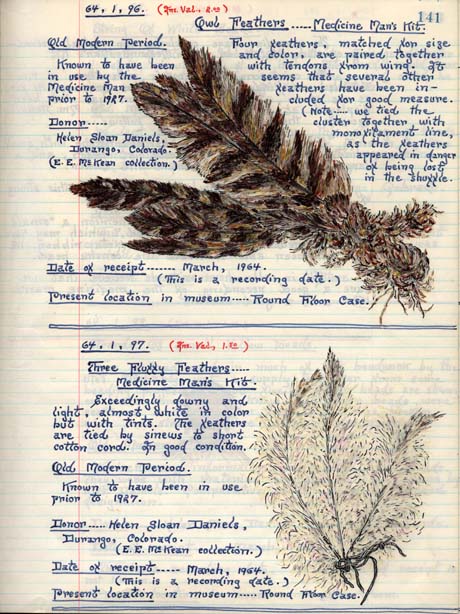 64, 1, 96. (Ins. Val., 2.00)
141
Owl Feathers ..... Medicine Man's Kit.
Old Modern Period.
Four feathers, matched for size
and color, are paired together
with tendons from wing. It
seems that several other
feathers have been in-
cluded for good measure.
(Note.... we tied the
cluster together with
monofilament line,
as the feathers
appeared in danger
of being lost
in the shuffle.
Known to have been
in use by the
Medicine Man
prior to 1927.
Donor .....
Helen Sloan Daniels,
Durango, Colorado.
(E. E. McKean collection.)
Date of receipt ....... March, 1964.
(This is a recording date.)
Present location in museum ..... Round Floor Case.
64, 1, 97. (Ins. Val., 1.00)
Three Fluffy Feathers .....
Medicine Man's Kit.
Exceedingly downy and
light, almost white in color
but with tints. The feathers
are tied by sinews to short
cotton cord. In good condition.
Old Modern Period.
Known to have been in use
prior to 1927.
Donor ..... Helen Sloan Daniels,
Durango, Colorado.
(E. E. McKean collection.)
Date of receipt ..... March, 1964.
(This is a recording date.)
Present location in museum ..... Round Floor Case.